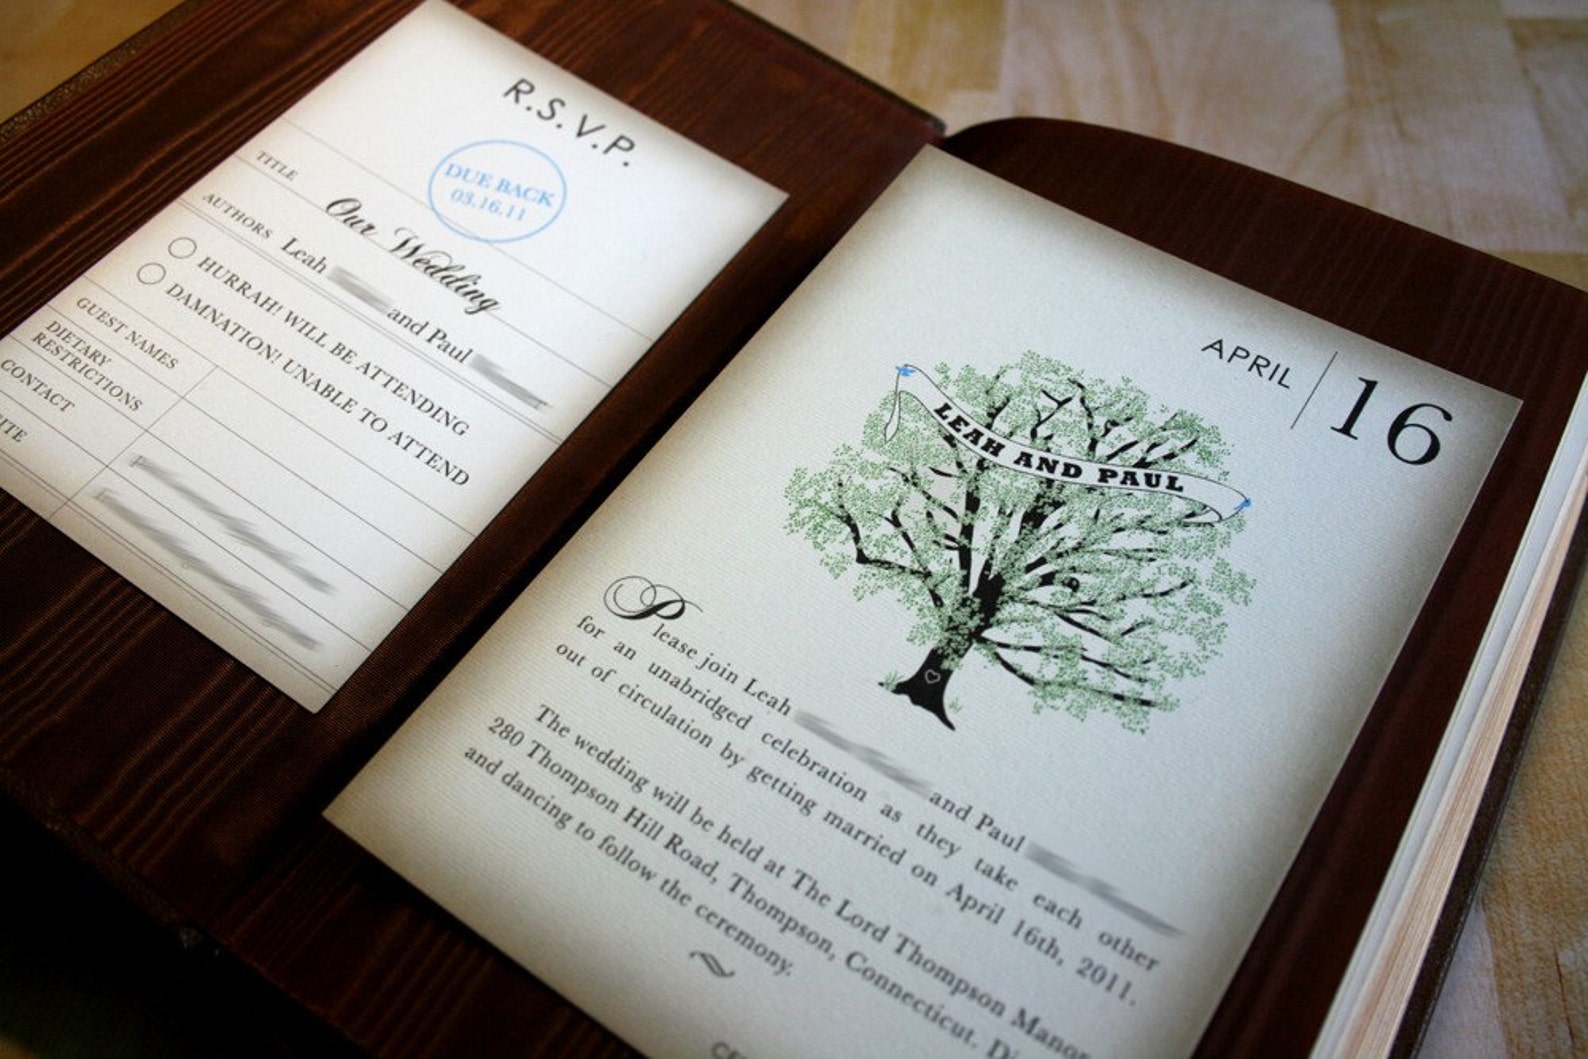 R.S.V.P.
DUE BACK
03.16.11
TITLE
Our Wedding
AUTHORS Leah and Paul
HURRAH! WILL BE ATTENDING
DAMNATION! UNABLE TO ATTEND
GUEST NAMES
DIETARY
RESTRICTIONS
CONTACT
APRIL 16
LEAH AND PAUL
Please join Leah and Paul
for an unabridged celebration as they take each other
out of circulation by getting married on April 16th, 2011.
The wedding will be held at The Lord Thompson Manor
280 Thompson Hill Road, Thompson, Connecticut.
and dancing to follow the ceremony.